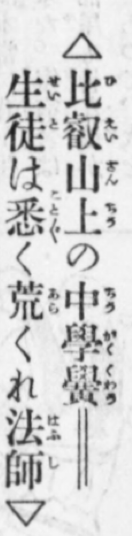 △比叡山上の中學黌＝
生徒は悉く荒くれ法師▽